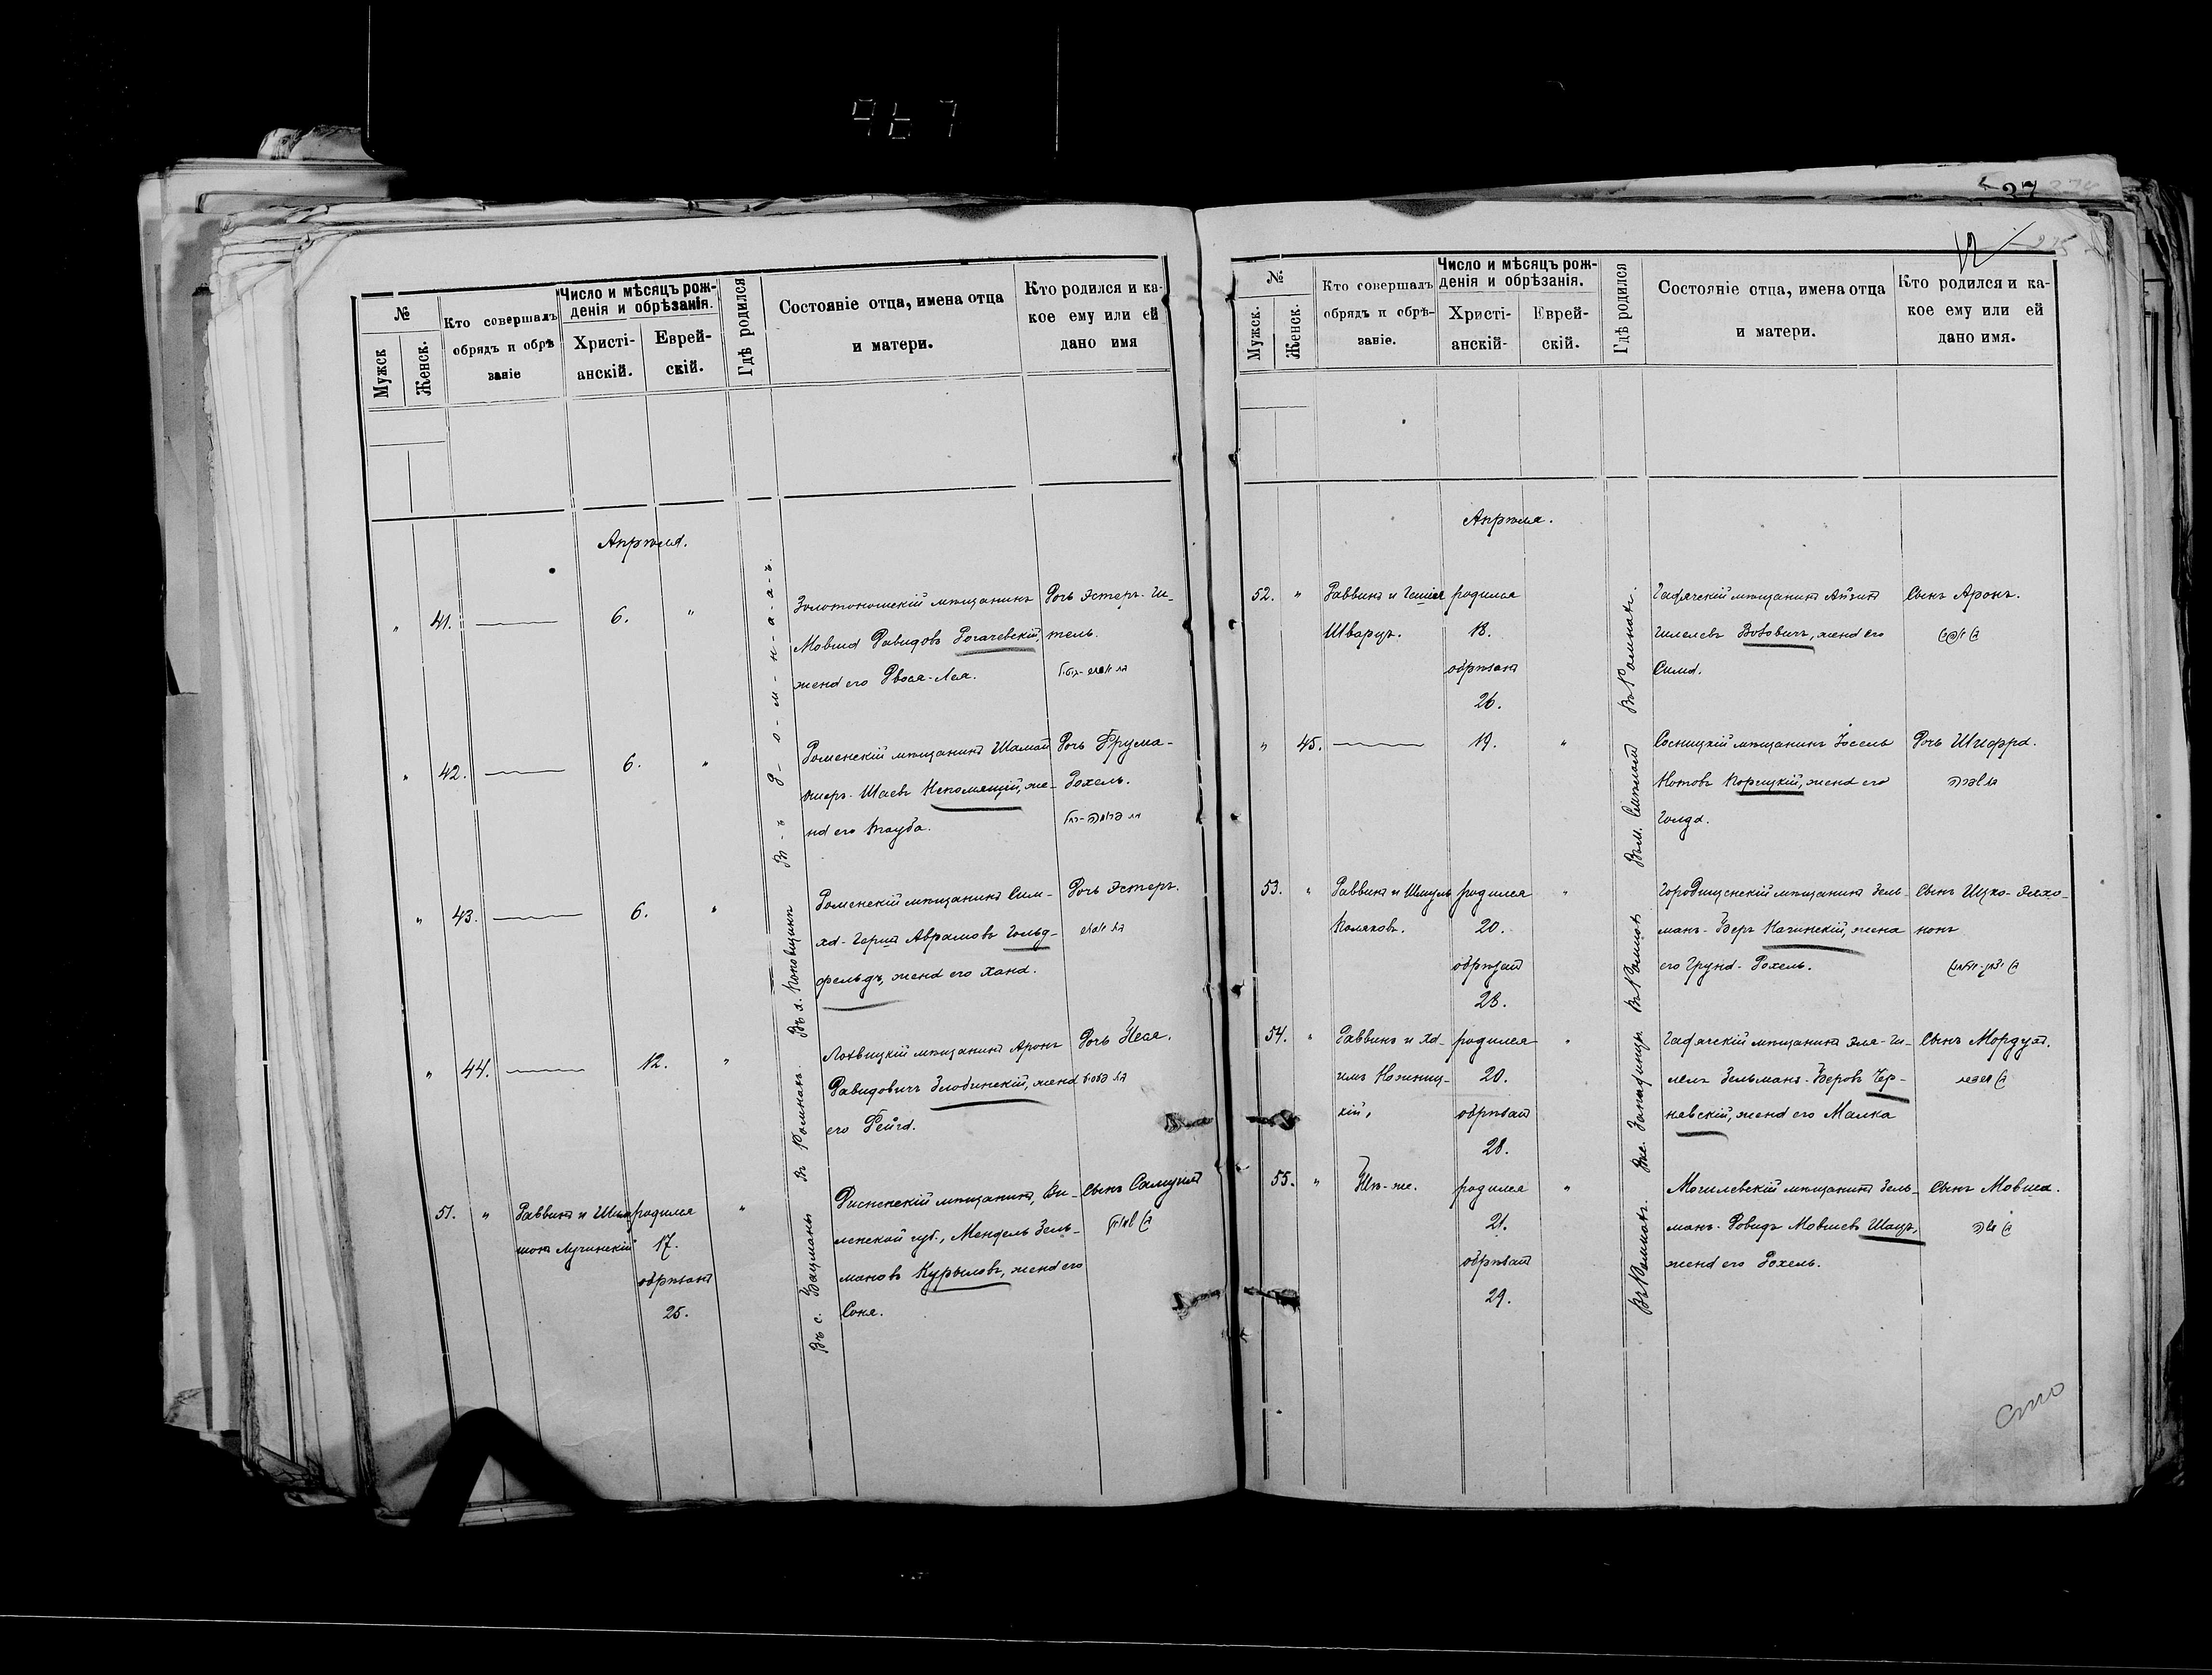 967
27
275
№
Мужск
Женск.
Кто совершалъ
обрядъ и обрѣ
заніе
Число и мѣсяцъ рож-
денія и обрѣзанія.
Христі-
анскій.
Еврей-
скій.
Гдѣ родился
Состояніе отца, имена отца
и матери.
Кто родился и ка-
кое ему или ей
дано имя
Апрѣля.
Въ Ромнахъ.
" 41. 6. "
Золотоношскій мѣщанинъ
Мовша Давидовъ Рогачевскій,
жена его Двося-Лея.
Дочь Эстеръ-Ги-
тель.
" 42. 6. "
Роменскій мѣщанинъ Шамай
Ошеръ-Шаевъ Непомящій, же-
на его Тауба.
Дочь Фрума-
Рохель.
" 43. 6. "
Роменскій мѣщанинъ Сим-
ха-Гершъ Аврамовъ Гольд-
фельдъ, жена его Хана.
Дочь Эстеръ.
Въ д. Коновщинѣ
" 44. 12. "
Лохвицкій мѣщанинъ Аронъ
Давидовичъ Злобинскій, жена
его Фейга.
Дочь Песя.
Въ Ромнахъ.
51. " Раввинъ и Шим
шонъ Лучинскій
родился
17.
обрѣзанъ
25.
"
Въ с. Бацманы
Дисненскій мѣщанинъ, Ви-
ленской губ., Мендель Зель-
мановъ Курыловъ, жена его
Соня.
Сынъ Самуилъ
№
Мужск.
Женск.
Кто совершалъ
обрядъ и обрѣ-
заніе.
Число и мѣсяцъ рож-
денія и обрѣзанія.
Христі-
анскій-
Еврей-
скій.
Гдѣ родился
Состояніе отца, имена отца
и матери.
Кто родился и ка-
кое ему или ей
дано имя.
Апрѣля.
52. " Раввинъ и Гешель
Шварцъ.
родился
18.
обрѣзанъ
26.
Въ Ромнахъ.
Гадячскій мѣщанинъ Айзикъ
Гилелевъ Вововичъ, жена его
Сима.
Сынъ Аронъ.
" 45. 19. "
Сосницкій мѣщанинъ Іосель
Нотовъ Корецкій, жена его
Голда.
Дочь Шифра.
דאַ שפרה
53. " Раввинъ и Шмуль
Поляковъ.
родился
20.
обрѣзанъ
28.
"
Въ Ромнахъ
Городищенскій мѣщанинъ Зель-
манъ-Беръ Качинскій, жена
его Груна-Рохель.
Сынъ Ицко-Элхо-
нонъ
54. " Раввинъ и Ха-
имъ Ножниц-
кій,
родился
20.
обрѣзанъ
28.
"
Гадячскій мѣщанинъ Эля-Ги-
лель Зельманъ-Беровъ Чер-
нявскій, жена его Малка
Сынъ Мордухъ.
55. " Тѣ-же.
родился
21.
обрѣзанъ
29.
"
Въ Ромнахъ.
Могилевскій мѣщанинъ Зель-
манъ-Довидъ Мовшевъ Шацъ,
жена его Рохель.
Сынъ Мовша.